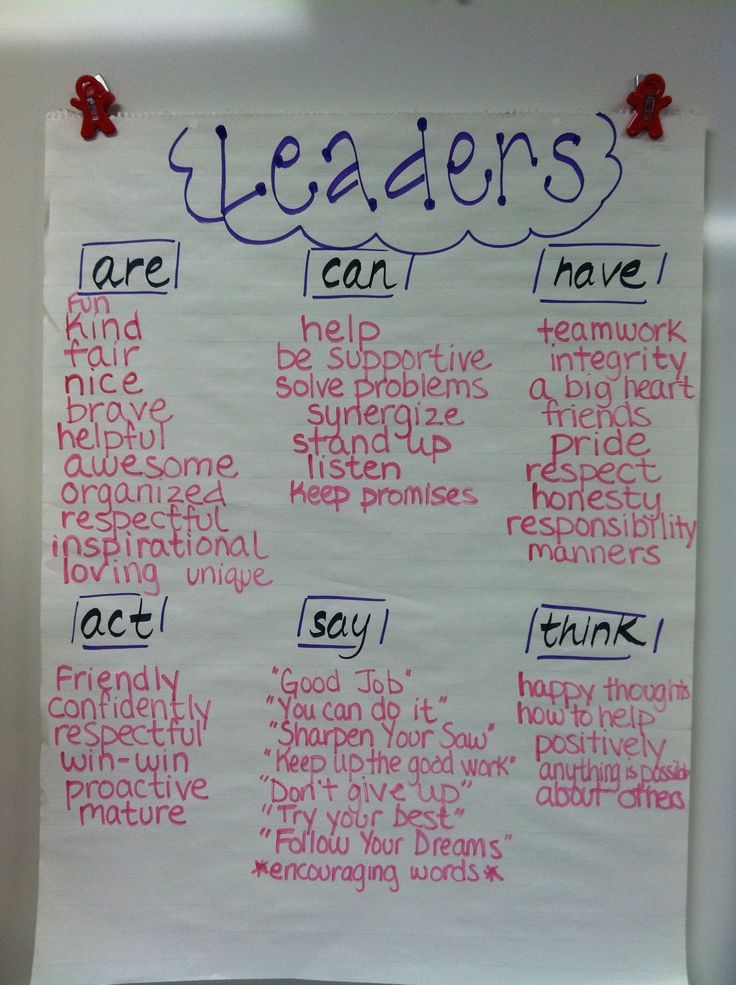 Leaders
are
Fun
kind
fair
nice
brave
helpful
awesome
organized
respectful
inspirational
loving unique
can
help
be supportive
solve problems
synergize
stand up
listen
keep promises
have
teamwork
integrity
a big heart
friends
pride
respect
honesty
responsibility
manners
act
Friendly
confidently
respectful
win-win
proactive
mature
say
"Good Job"
"You can do it"
"Sharpen Your Saw"
"Keep up the good work"
"Don't give up"
"Try your best"
"Follow Your Dreams"
*encouraging words*
think
happy thoughts
how to help
positively
anything is possible
about others